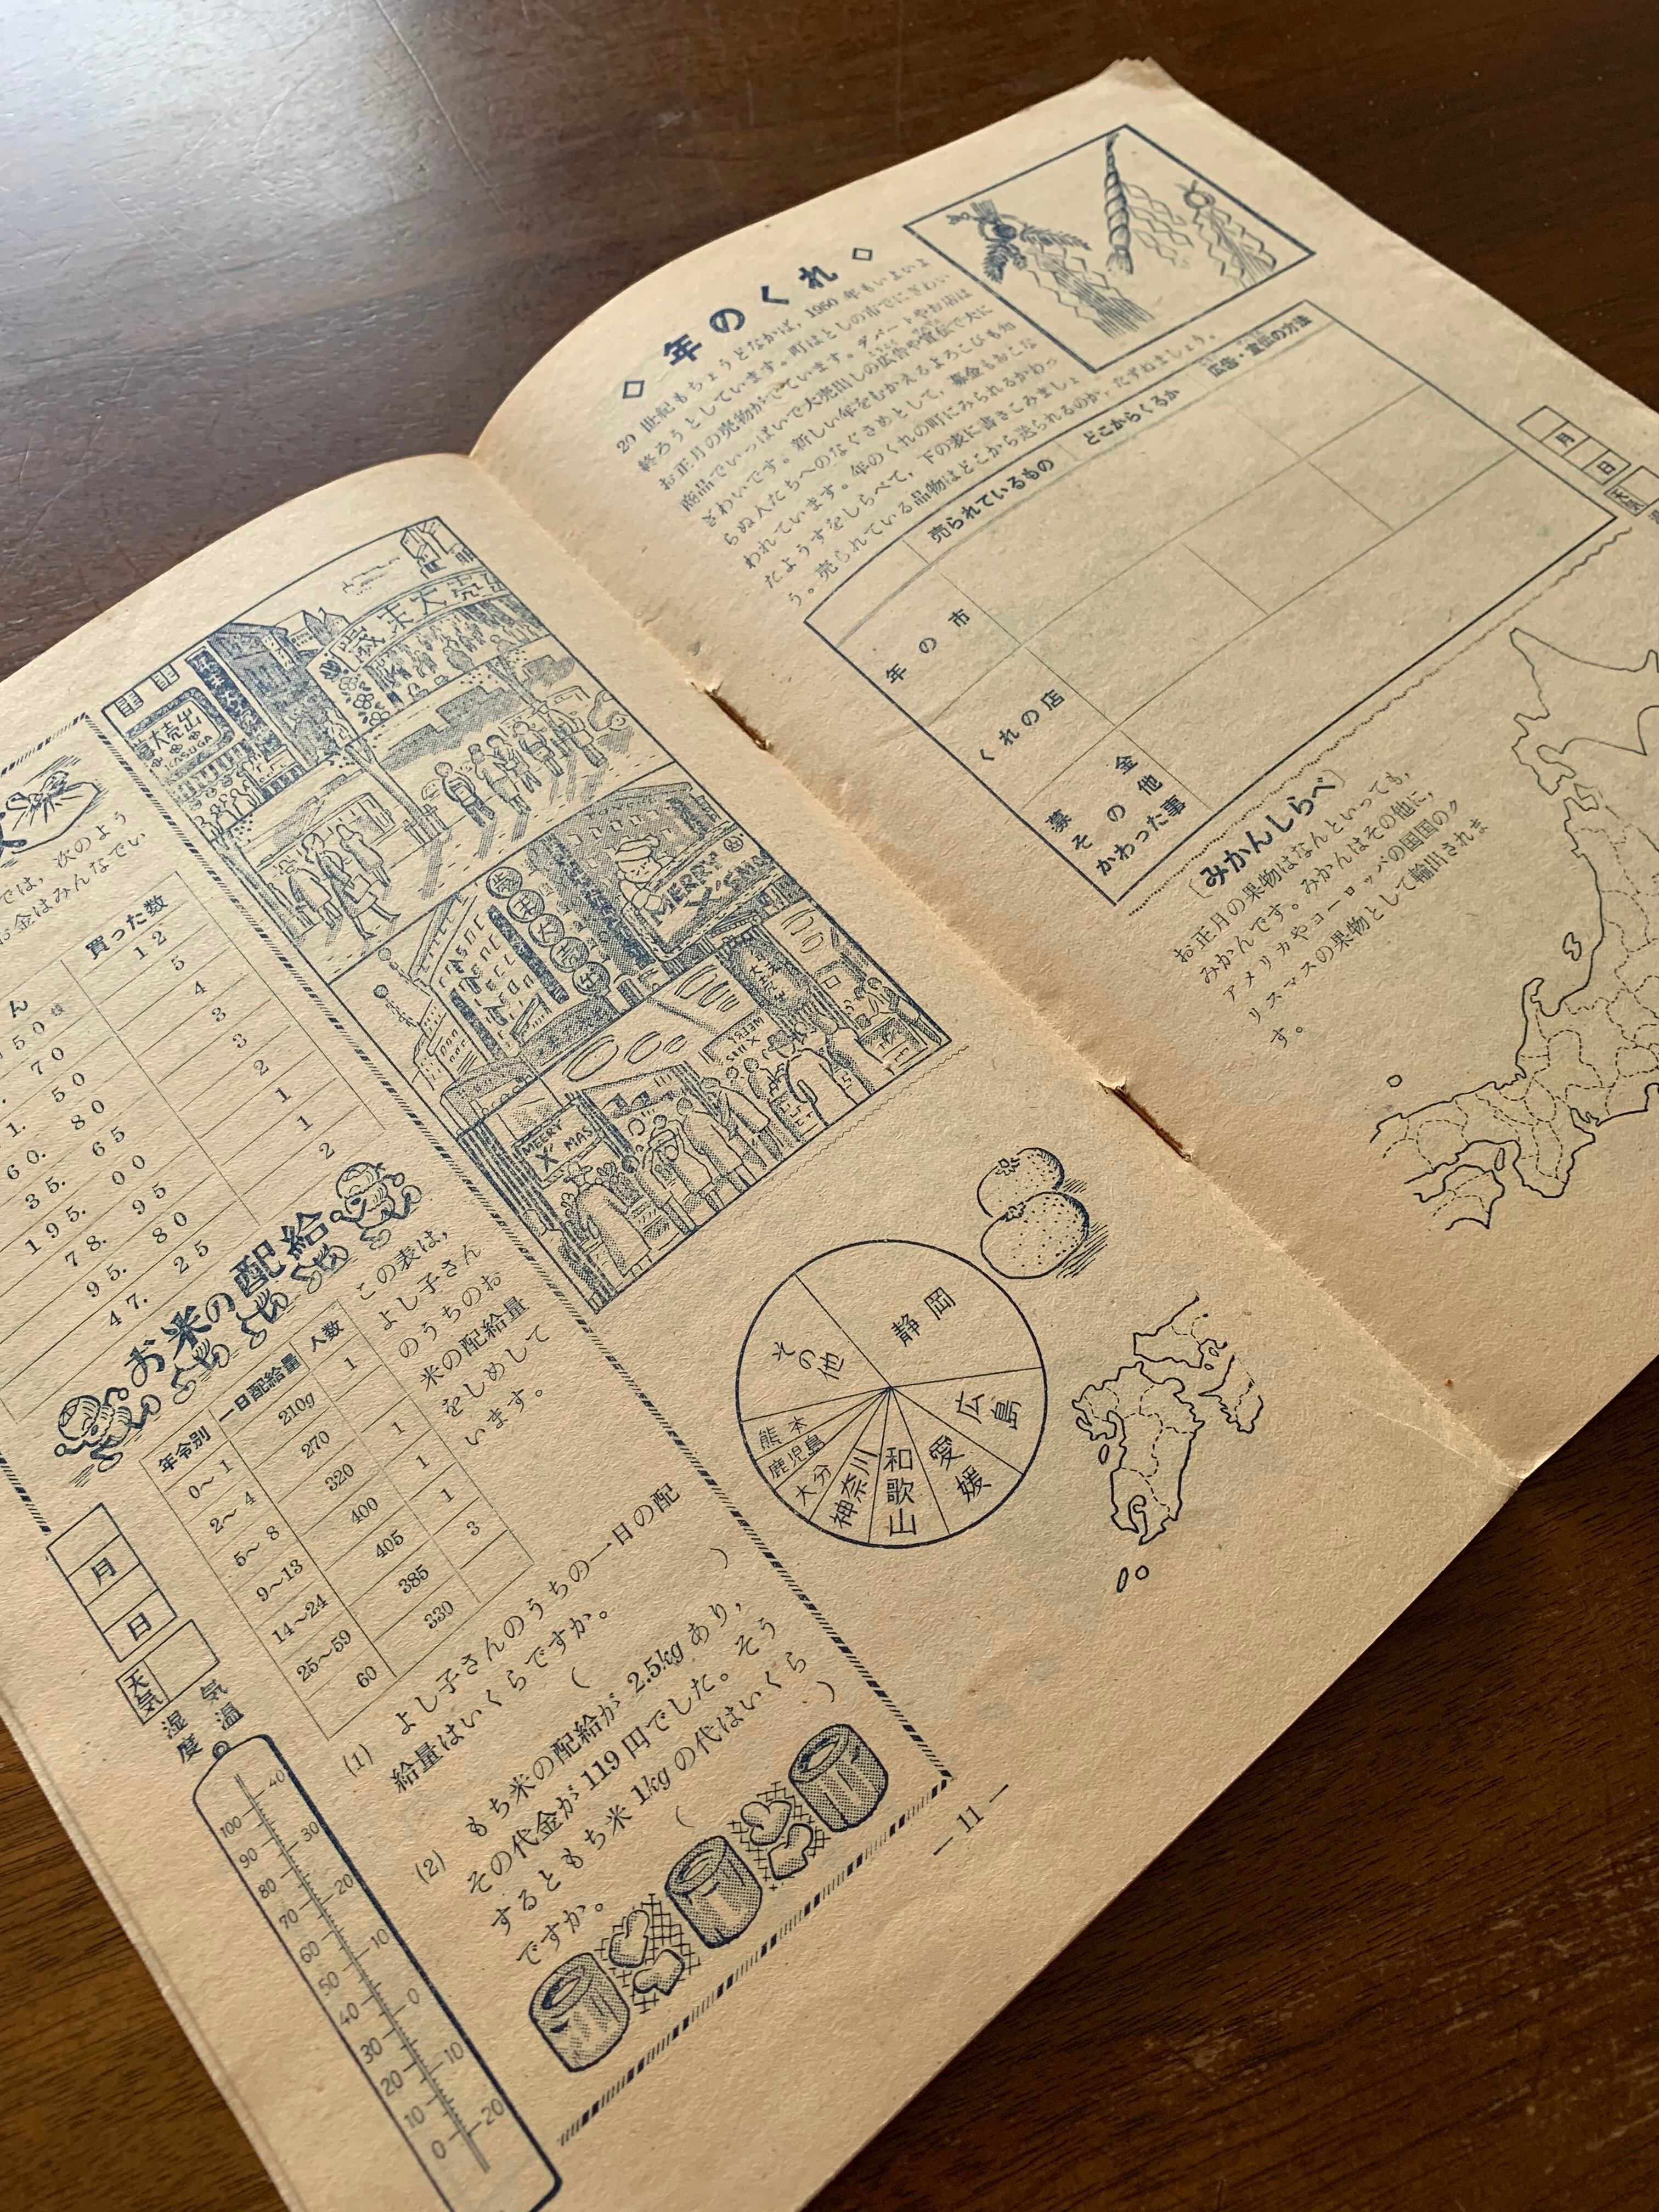 ◇ 年のくれ ◇
20 世紀もちょうどなかば，1950 年もいよいよ
終ろうとしています。町はとしの市でにぎわい
お正月の売物がでています。デパートやお店は
商品でいっぱいで大売出しの広告や宣伝で大に
ぎわいです。新しい年をむかえるよろこびも知
らぬ人たちへのなぐさめとして，募金もおこな
われています。年のくれの町にみられるかわっ
たようすをしらべて，下の表に書きこみましょ
う。売られている品物はどこから送られるのか，たずねましょう。
売られているもの
どこからくるか
広告・宣伝の方法
年の市
くれの店
募金
その他
かわった事
月
日
天気
〔みかんしらべ〕
お正月の果物はなんといっても，
みかんです。みかんはその他に，
アメリカやヨーロッパの国国のク
リスマスの果物として輸出されま
す。
歳末大売
大売出
KASUGA
歳末大売出
MERRY
X'MAS
MERRY
X'MAS
静岡
広島
愛媛
和歌山
神奈川
大分
鹿児島
熊本
その他
では，次のよう
お金はみんなでい
ん
買った数
50
12
70
5
1. 50
4
60. 80
3
35. 65
3
195. 00
2
78. 95
1
95. 80
1
47. 25
2
お米の配給
この表は，
よし子さん
のうちのお
米の配給量
をしめして
います。
年令別 一日配給量 人数
0～1 210g 1
2～4 270
5～8 320 1
9～13 400 1
14～24 405 1
25～59 385 3
60 330
(1) よし子さんのうちの一日の配
給量はいくらですか。
( )
(2) もち米の配給が 2.5kg あり，
その代金が 119 円でした。そう
するともち米 1kg の代はいくら
ですか。 ( )
月
日
天気
気温
湿度
40
30
20
10
0
10
20
100
90
80
70
60
50
40
30
20
10
0
— 11 —